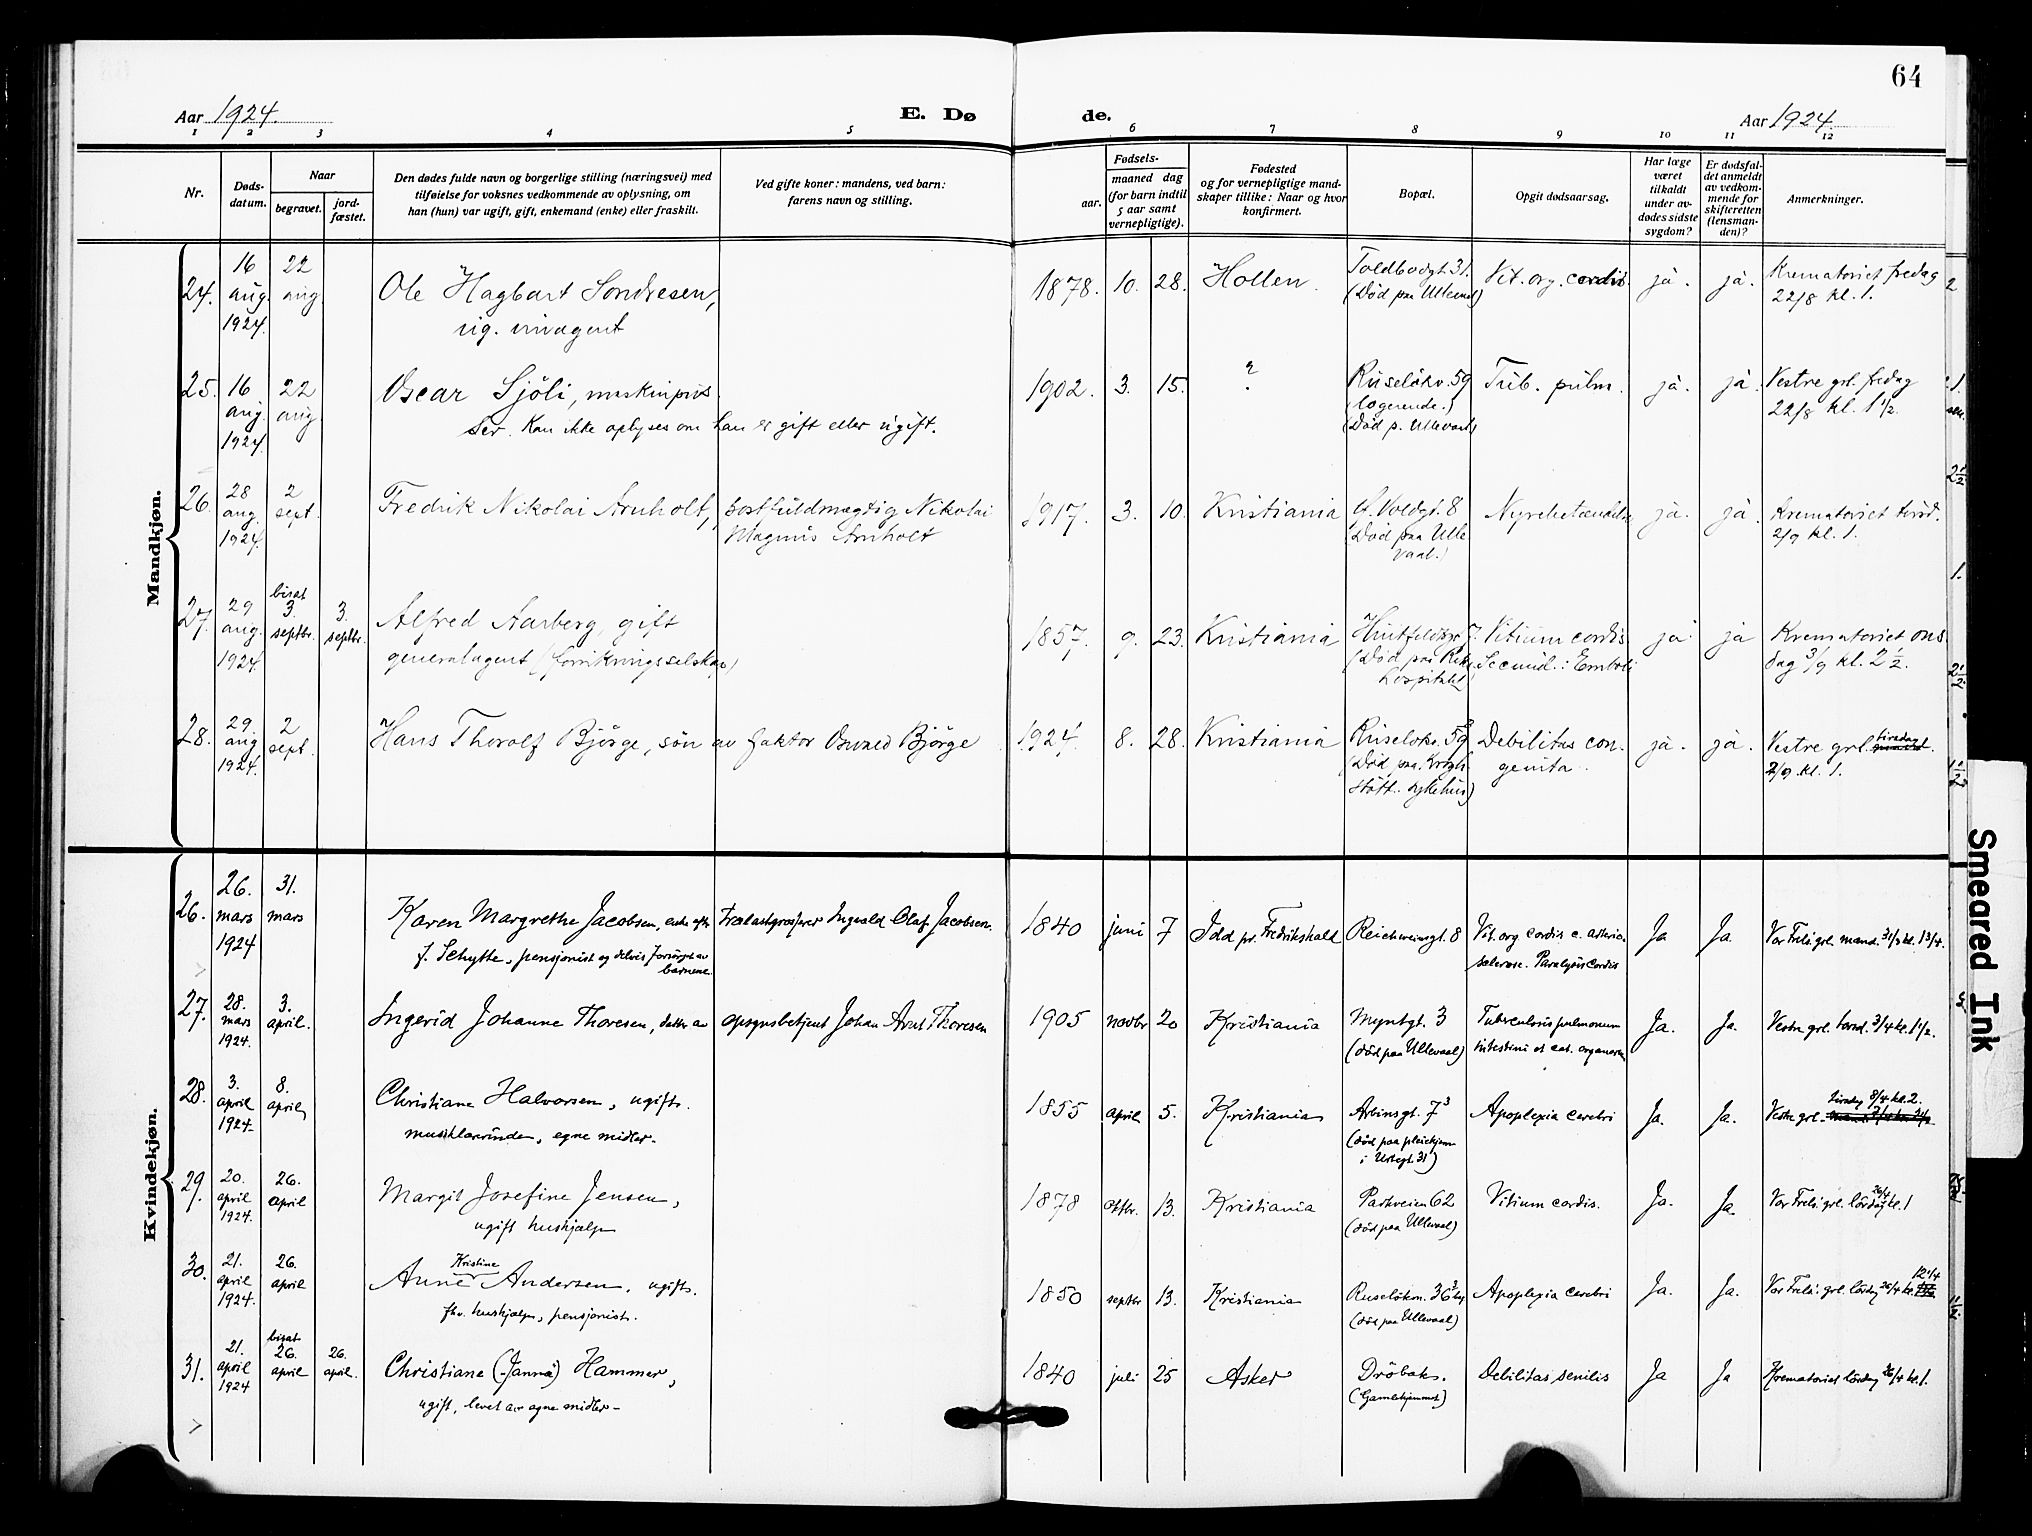 64
Aar 1924.
E. Dø
de.
Aar 1924.
1 2 3 4 5 6 7 8 9 10 11 12
Nr.
Døds-
datum.
Naar
begravet.
jord-
fæstet.
Den dødes fulde navn og borgerlige stilling (næringsvei) med
tilføielse for voksnes vedkommende av oplysning, om
han (hun) var ugift, gift, enkemand (enke) eller fraskilt.
Ved gifte koner: mandens, ved barn:
farens navn og stilling.
Fødsels-
aar.
maaned dag
(for barn indtil
5 aar samt
vernepligtige).
Fødested
og for vernepligtige mand-
skaper tillike: Naar og hvor
konfirmert.
Bopæl.
Opgit dødsaarsag.
Har læge
været
tilkaldt
under av-
dødes sidste
sygdom?
Er dødsfal-
det anmeldt
av vedkom-
mende for
skifteretten
(lensman-
den)?
Anmerkninger.
Mandkjøn.
24.
16
aug.
1924.
22
aug
Ole Hagbart Sondresen,
ug. vinagent
1878. 10. 28.
Hollen.
Toldbodgt. 31.
(Død paa Ullevaal)
Vit. org. cordis.
ja.
ja.
Krematoriet fredag
22/8 kl. 1.
25.
16
aug.
1924.
22
aug
Oscar Sjöli, maskinpus
ser. Kan ikke oplyses om han er gift eller ugift.
1902. 3. 15.
?
Ruseløkv. 59
(logerende.)
(Død p. Ullevaal)
Tub. pulm.
ja.
ja.
Vestre grl. fredag
22/8 kl. 1 1/2.
26.
28
aug.
1924.
2
sept.
Fredrik Nikolai Arnholt,
postfuldmægtig Nikolai
Magnus Arnholt
1917. 3. 10.
Kristiania
Ø. Voldgt. 8
(Død paa Ulle
vaal.)
ja.
ja.
Krematoriet tirsd.
2/9 kl. 1.
27.
29
aug.
1924.
bisat
3.
septbr.
3.
septbr.
Alfred Aarberg, gift
generalagent (forsikringsselskap)
1857. 9. 23.
Kristiania
Huitfeldtsgt. 7.
(Død paa Riks
hospitalet)
Vitium cordis
Secund.: Emboli
ja
ja
Krematoriet ons
dag 3/9 kl. 2 1/2.
28.
29.
aug
1924.
2
sept.
Hans Thorolf Bjørge, søn av faktor Osvald Bjørge
1924. 8. 28.
Kristiania
Ruseløkv. 59
(Død paa Krogh
støtt. sykehus)
Debilitas con.
genita.
ja.
ja.
Vestre grl. tirsdag
2/9. kl. 1.
Kvindekjøn.
26.
26.
mars
1924
31.
mars
Karen Margrethe Jacobsen, enke efter
Trælastgrosserer Ingvald Olaf Jacobsen.
f. Schytte, pensjonist og delvis forsørget av
barnene
1840 juni 7
Idd pr. Fredrikshald
Reichweinsgt. 8
Vit. org cordis c. arterio.
sclerose. Paralysis cordis
Ja
Ja.
Vor Frels. grl. mand. 31/3 kl. 1 3/4.
27.
28.
mars
1924.
3.
april.
Ingerid Johanne Thoresen, datter av
opsynsbetjent Johan Arnt Thoresen
1905 novbr 20
Kristiania
Myntgt. 3
(død paa Ullevaal)
Tuberculosis pulmonum
intestini et cat. organorum
Ja.
Ja.
Vestre grl. torsd. 3/4 kl. 1 1/2.
28.
3.
april
1924.
8.
april
Christiane Halvorsen, ugift.
musiklærerinde, egne midler.
1855 april 5.
Kristiania
Arbinsgt. 7³
(død paa pleiehjem
i Urtegt. 31)
Apoplexia cerebri
Ja.
Ja.
tirsdag 8/4 kl. 2.
Vestre grl.
29.
20.
april
1924.
26.
april
Margit Josefine Jensen,
ugift hushjælp
1878 oktbr. 13.
Kristiania
Parkveien 62
(død paa Ullevaal)
Vitium cordis.
Ja.
Ja.
Vor Frels. grl. lørdag 26/4 kl. 1
30.
21.
april
1924.
26.
april
Kristine
Anne Andersen, ugift.
fhv. hushjælp, pensjonist.
1850 septbr 13.
Kristiania
Ruseløkvn. 36
(død paa Ullevaal)
Apoplexia cerebri
Ja.
Ja.
12 1/4
Vor Frels. grl. lørdag 26/4 kl.
31.
21.
april
1924
bisat
26.
april
26.
april.
Christiane (Janna) Hammer,
ugift, levet av egne midler.
1840 juli 25
Asker
Drøbak.
(Gamlehjemmet)
Debilitas senilis
Ja
Ja
Krematoriet lørdag 26/4 kl. 1.
Smeared Ink